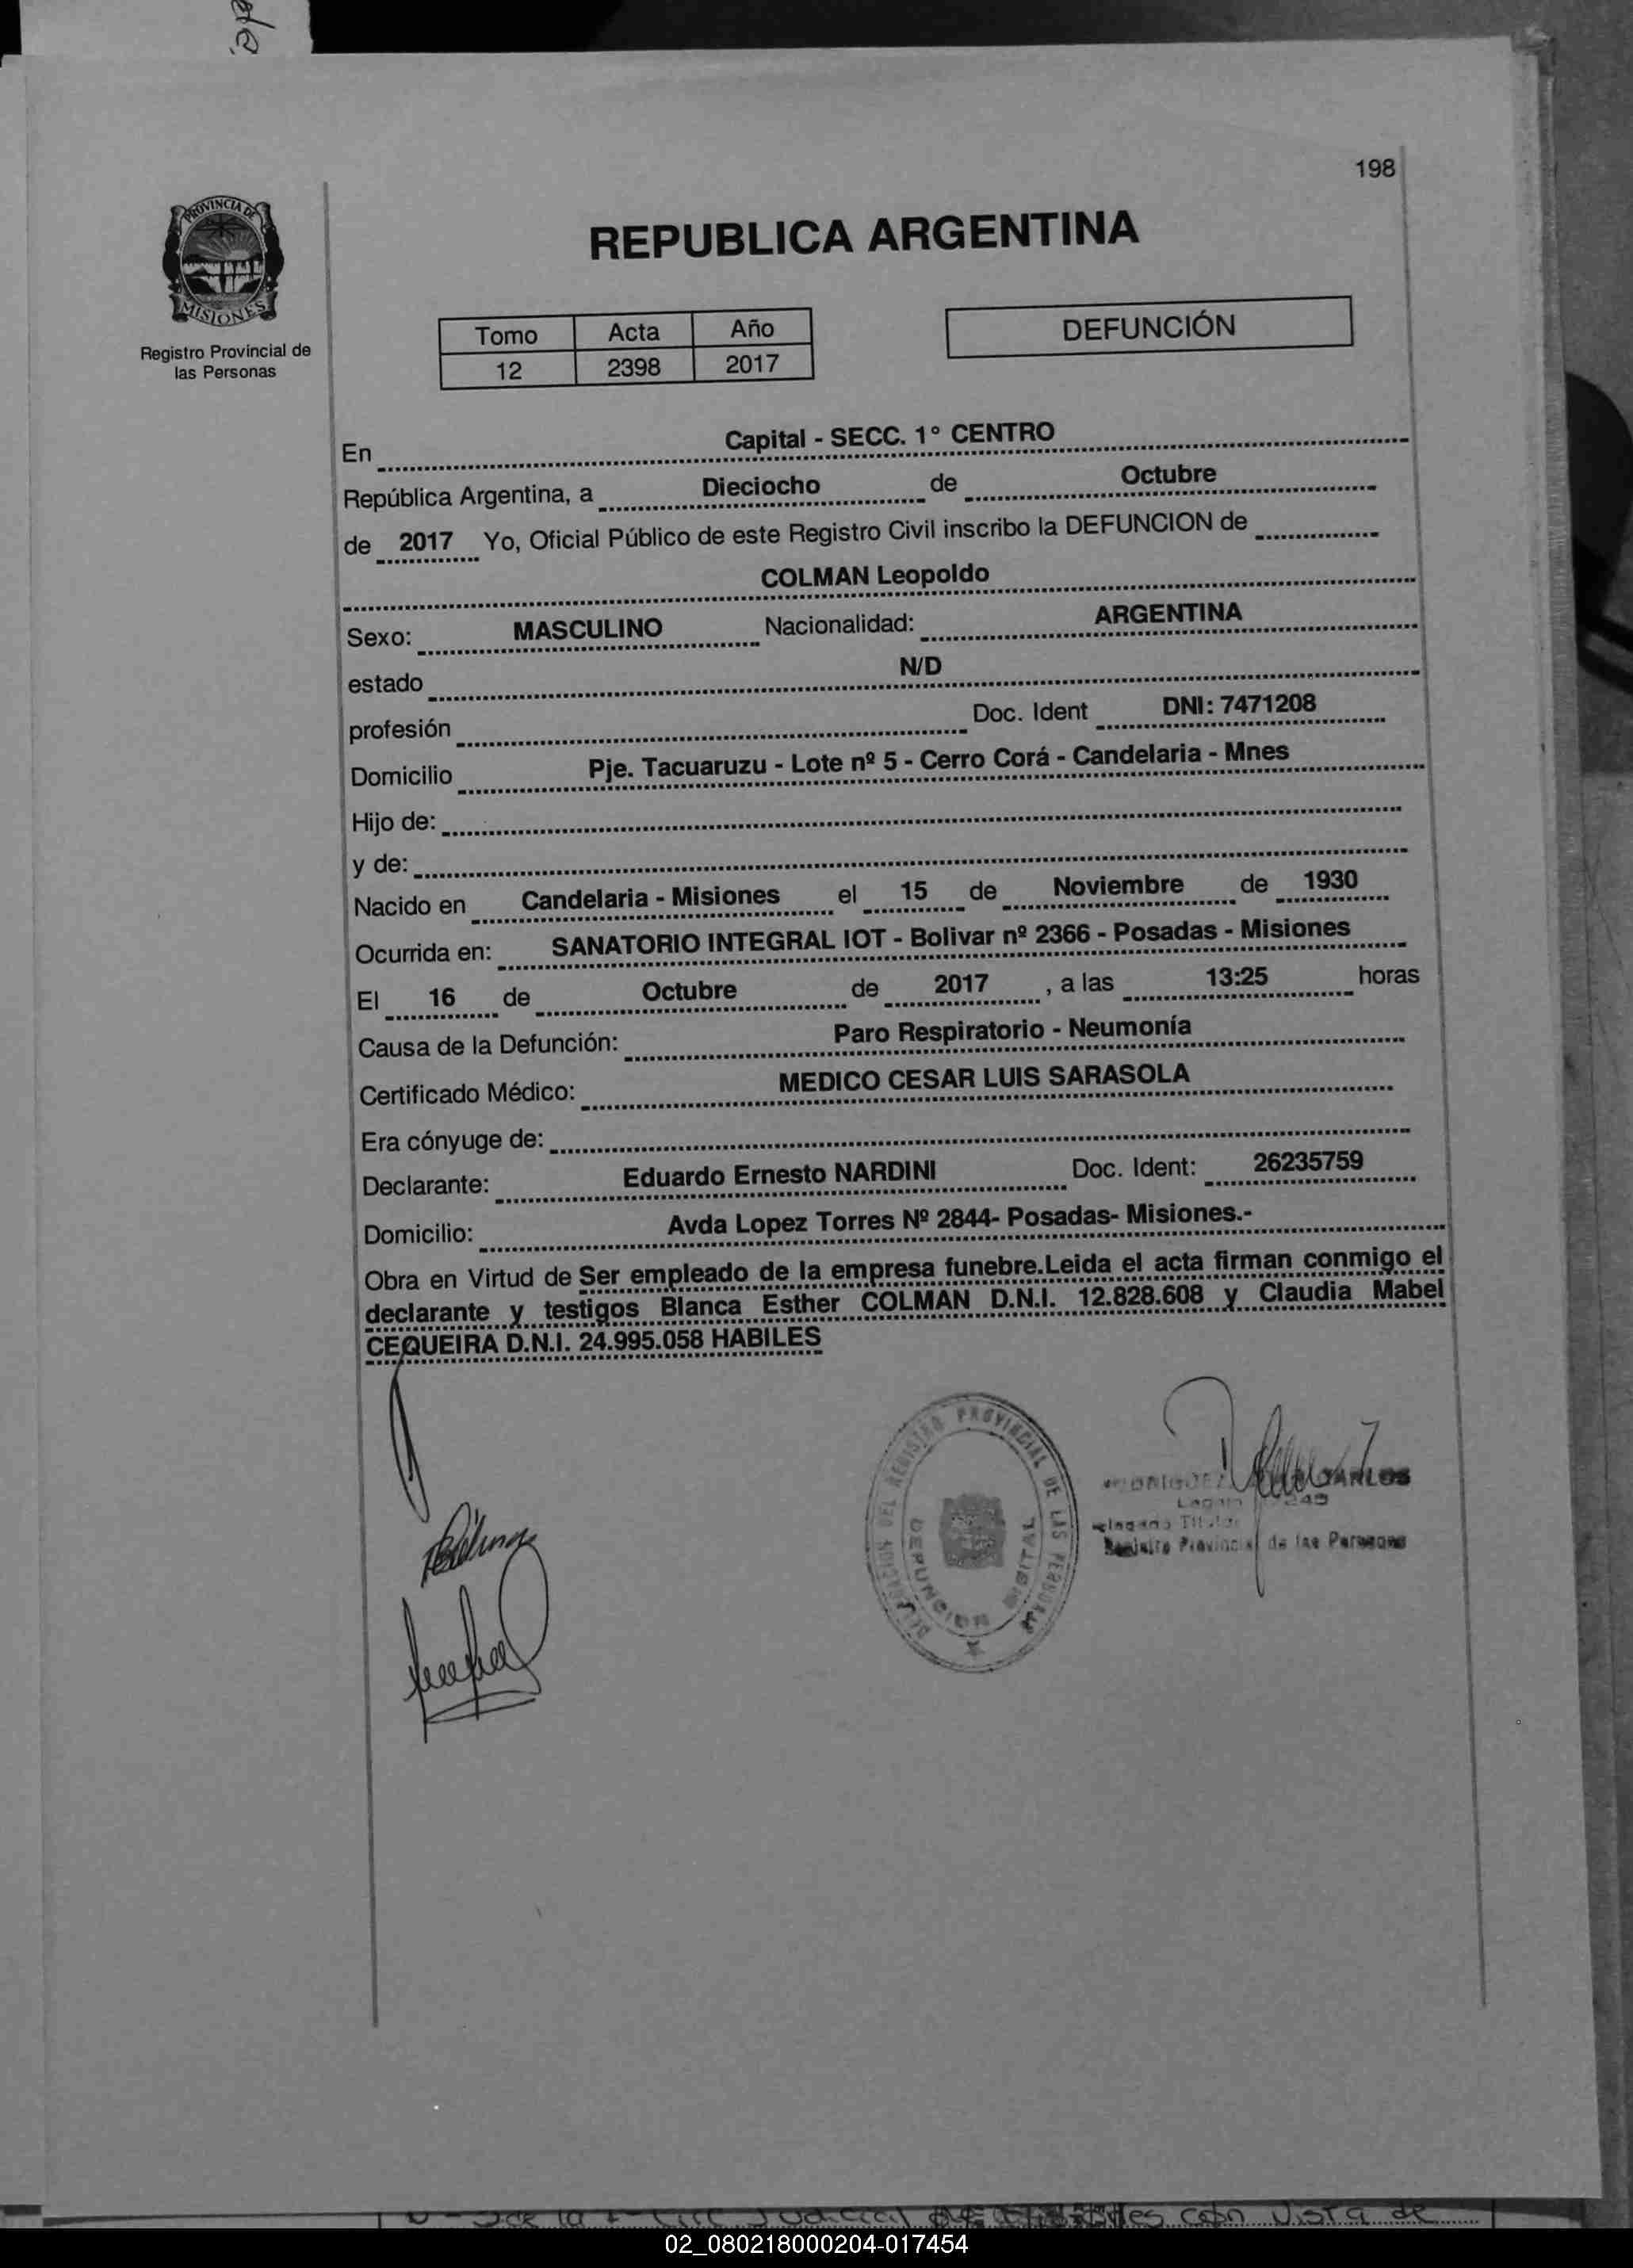 198
PROVINCIA DE
MISIONES
Registro Provincial de
las Personas
REPUBLICA ARGENTINA
Tomo Acta Año
12 2398 2017
DEFUNCIÓN
En Capital - SECC. 1° CENTRO
República Argentina, a Dieciocho de Octubre
de 2017 Yo, Oficial Público de este Registro Civil inscribo la DEFUNCION de
COLMAN Leopoldo
Sexo: MASCULINO Nacionalidad: ARGENTINA
estado N/D
profesión Doc. Ident DNI: 7471208
Domicilio Pje. Tacuaruzu - Lote nº 5 - Cerro Corá - Candelaria - Mnes
Hijo de:
y de:
Nacido en Candelaria - Misiones el 15 de Noviembre de 1930
Ocurrida en: SANATORIO INTEGRAL IOT - Bolivar nº 2366 - Posadas - Misiones
El 16 de Octubre de 2017 , a las 13:25 horas
Causa de la Defunción: Paro Respiratorio - Neumonía
Certificado Médico: MEDICO CESAR LUIS SARASOLA
Era cónyuge de:
Declarante: Eduardo Ernesto NARDINI Doc. Ident: 26235759
Domicilio: Avda Lopez Torres Nº 2844- Posadas- Misiones.-
Obra en Virtud de Ser empleado de la empresa funebre.Leida el acta firman conmigo el
declarante y testigos Blanca Esther COLMAN D.N.I. 12.828.608 y Claudia Mabel
CEQUEIRA D.N.I. 24.995.058 HABILES
DEL REGISTRO PROVINCIAL DE LAS PERSONAS
DEFUNCION DIGITAL
CARLOS
Titular
Registro Provincial de las Personas
02_080218000204-017454